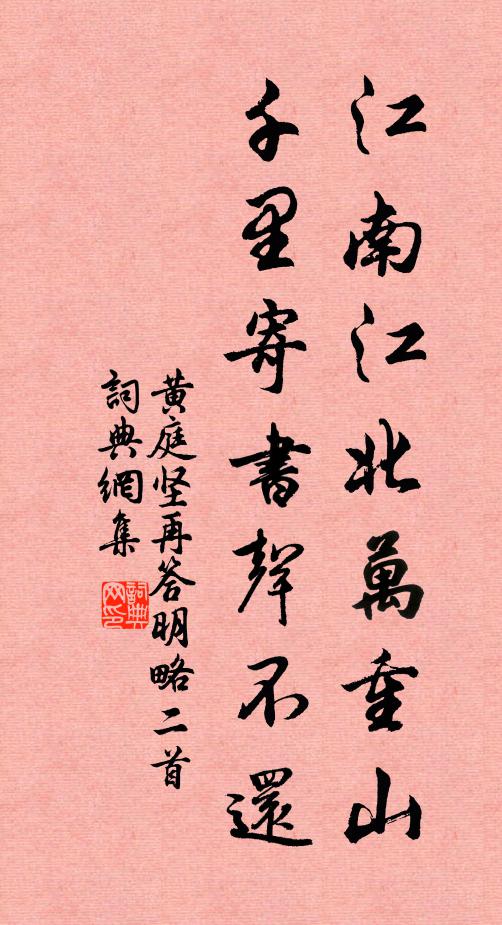 江南江北萬重山
千里寄書聲不還
黄庭坚再答明略二首
詞典網集
詞典网印